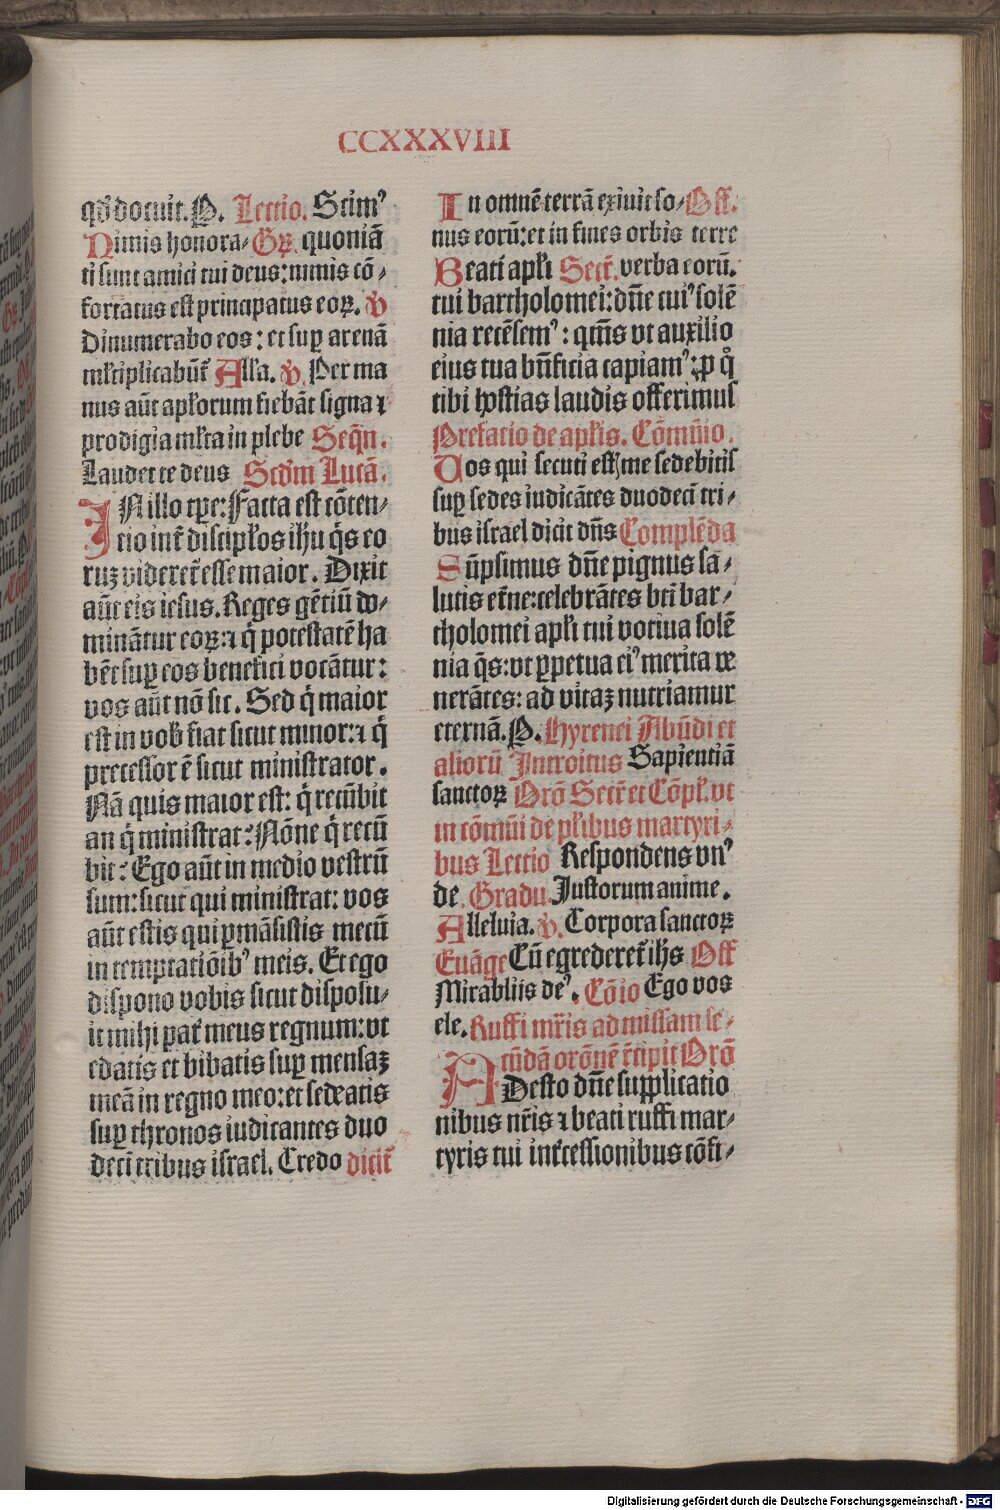 CCXXXVIII
qd̄ docuit. P. Lectio. Scimꝰ
Nimis honora⸗ Gr̄. quoniā
ti sunt amici tui deus: nimis cō⸗
fortatus est principatus eoꝝ. ℣
Dinumerabo eos: et suꝑ arenā
mƚtiplicabūt᷑ Alƚa. ℣. Per ma
nus aūt apƚorum fiebāt signa ⁊
prodigia mƚta in plebe Seq̄n.
Laudet te deus Scd̄m Lucā.
IN illo tꝑe: Facta est cōten⸗
cio int᷑ discipƚos ihū q̇s eo
ruꝫ videret᷑ esse maior. Dixit
aūt eis iesus. Reges gētiū do⸗
minātur eoꝝ: ⁊ q̇ potestatē ha
bēt suꝑ eos benefici vocātur:
vos aūt nō sic. Sed q̇ maior
est in vob̄ fiat sicut minor: ⁊ q̇
precessor ē sicut ministrator.
Nā quis maior est: q̇ recūbit
an q̇ ministrat: Nōne q̇ recū
bit: Ego aūt in medio vestrū
sum: sicut qui ministrat: vos
aūt estis qui ꝑmāsistis mecū
in temptatiōibꝰ meis. Et ego
dispono vobis sicut disposu⸗
it mihi pat᷑ meus regnum: vt
edatis et bibatis suꝑ mensaꝫ
meā in regno meo: et sedeatis
suꝑ thronos iudicantes duo
deci tribus israel. Credo dicit᷑
In omnē terrā exiuit so⸗ Off.
nus eorū: et in fines orbis terre
Beati apƚi Secr̄. verba eorū.
tui bartholomei: dn̄e cuiꝰ solē
nia recēsemꝰ: qm̄s vt auxilio
eius tua bn̄ficia capiamꝰ: ꝓ q̊
tibi hostias laudis offerimus
Prefatio de apƚis. Cōmūio.
Vos qui secuti estis me sedebitis
suꝑ sedes iudicātes duodeci tri⸗
bus israel dicit dn̄s Complēda
Sūpsimus dn̄e pignus sa⸗
lutis et᷑ne: celebrātes bt̄i bar⸗
tholomei apƚi tui votiua solē
nia q̄s: vt ꝑpetua eiꝰ merita ve
nerātes: ad vitaꝫ nutriamur
eternā. P. Hyrenei Abūdi et
aliorū Introitus Sapientiā
sanctoꝝ Orō Secr̄ et Cōpƚ. vt
in cōmūi de pƚibus martyri⸗
bus Lectio Respondens vnꝰ
de Gradu. Justorum anime.
Alleluia. ℣. Corpora sanctoꝝ
Euāge Cū egrederet᷑ ihs Off
Mirabilis deꝰ. Cōio Ego vos
ele. Ruffi mr̄is ad missam se⸗
cūdā orōnē r̄cipit Orō
ADesto dn̄e supplicatio
nibus nr̄is ⁊ beati ruffi mar⸗
tyris tui int᷑cessionibus cōfi⸗
Digitalisierung gefördert durch die Deutsche Forschungsgemeinschaft - DFG